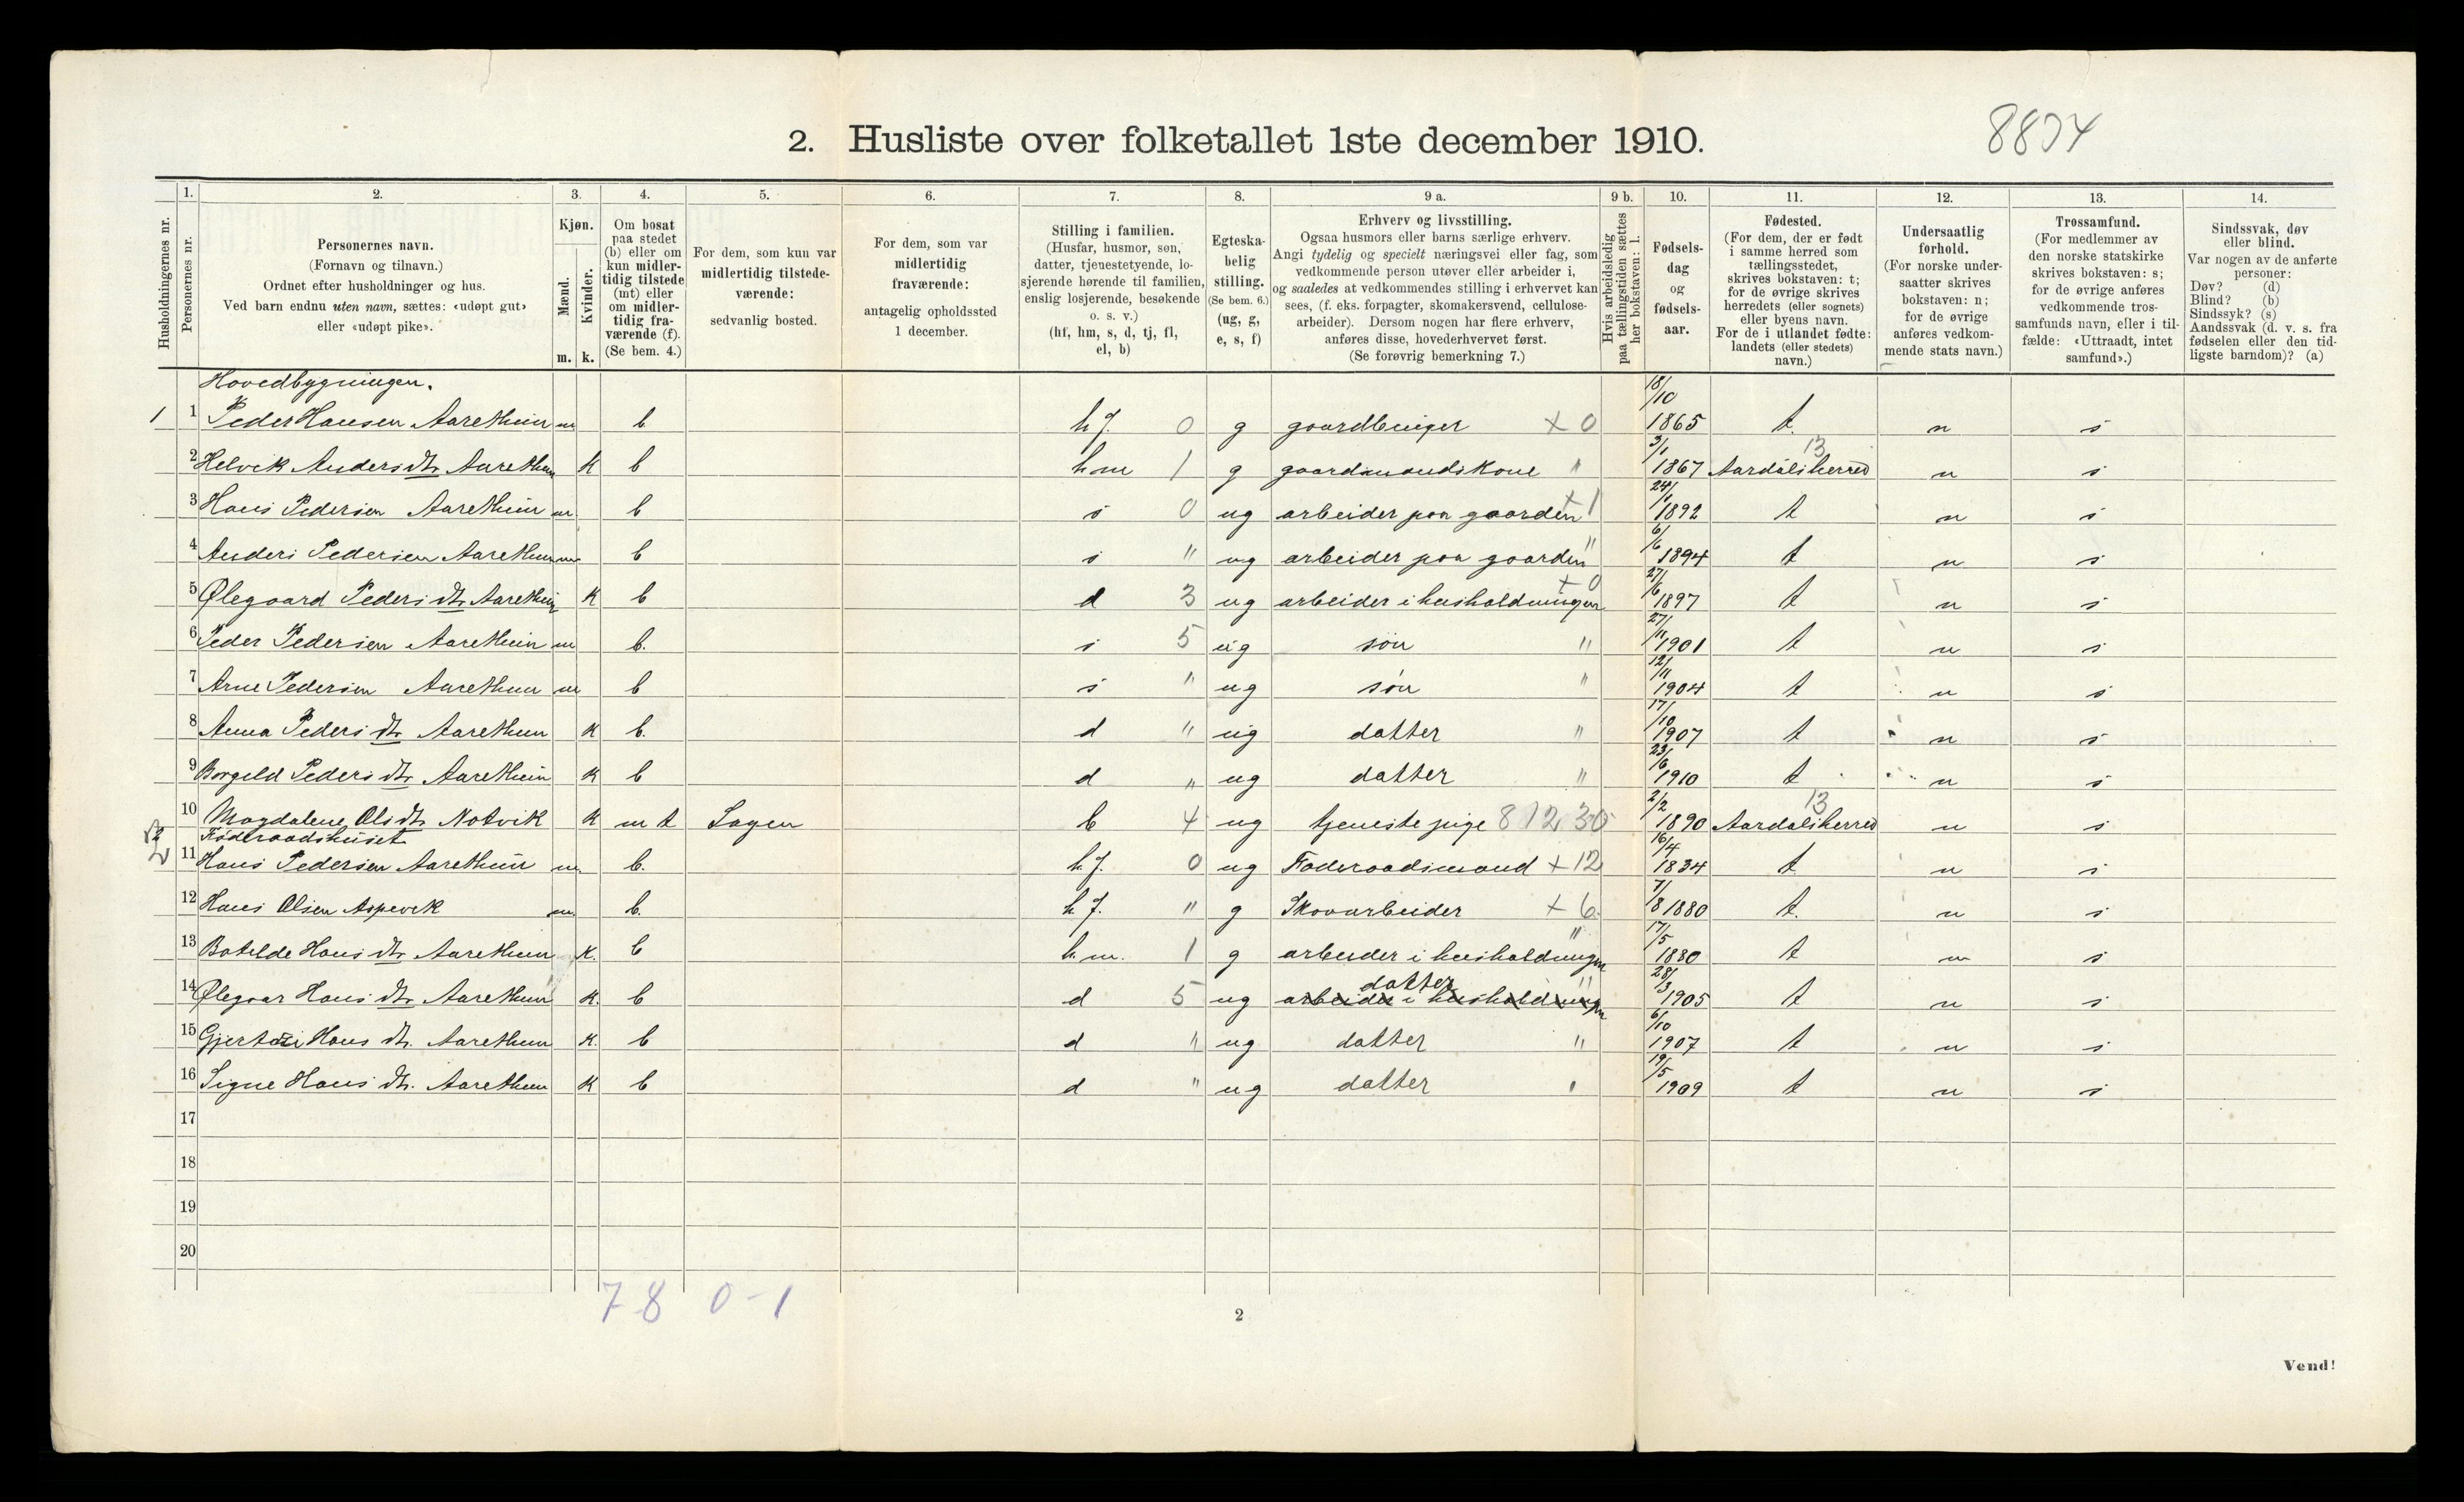 2. Husliste over folketallet 1ste december 1910.
8834
1. 2. 3. 4. 5. 6. 7. 8. 9 a. 9 b. 10. 11. 12. 13. 14.
Husholdningernes nr.
Personernes nr.
Personernes navn.
(Fornavn og tilnavn.)
Ordnet efter husholdninger og hus.
Ved barn endnu uten navn, sættes: «udøpt gut»
eller «udøpt pike».
Kjøn.
Mænd.
Kvinder.
m. k.
Om bosat
paa stedet
(b) eller om
kun midler-
tidig tilstede
(mt) eller
om midler-
tidig fra-
værende (f).
(Se bem. 4.)
For dem, som kun var
midlertidig tilstede-
værende:
sedvanlig bosted.
For dem, som var
midlertidig
fraværende:
antagelig opholdssted
1 december.
Stilling i familien.
(Husfar, husmor, søn,
datter, tjenestetyende, lo-
sjerende hørende til familien,
enslig losjerende, besøkende
o. s. v.)
(hf, hm, s, d, tj, fl,
el, b)
Egteska-
belig
stilling.
(Se bem. 6.)
(ug, g,
e, s, f)
Erhverv og livsstilling.
Ogsaa husmors eller barns særlige erhverv.
Angi tydelig og specielt næringsvei eller fag, som
vedkommende person utøver eller arbeider i,
og saaledes at vedkommendes stilling i erhvervet kan
sees, (f. eks. forpagter, skomakersvend, cellulose-
arbeider). Dersom nogen har flere erhverv,
anføres disse, hovederhvervet først.
(Se forøvrig bemerkning 7.)
Hvis arbeidsledig
paa tællingstiden sættes
her bokstaven: l.
Fødsels-
dag
og
fødsels-
aar.
Fødested.
(For dem, der er født
i samme herred som
tællingsstedet,
skrives bokstaven: t;
for de øvrige skrives
herredets (eller sognets)
eller byens navn.
For de i utlandet fødte:
landets (eller stedets)
navn.)
Undersaatlig
forhold.
(For norske under-
saatter skrives
bokstaven: n;
for de øvrige
anføres vedkom-
mende stats navn.)
Trossamfund.
(For medlemmer av
den norske statskirke
skrives bokstaven: s;
for de øvrige anføres
vedkommende tros-
samfunds navn, eller i til-
fælde: «Uttraadt, intet
samfund».)
Sindssvak, døv
eller blind.
Var nogen av de anførte
personer:
Døv? (d)
Blind? (b)
Sindssyk? (s)
Aandssvak (d. v. s. fra
fødselen eller den tid-
ligste barndom)? (a)
Hovedbygningen.
1 1 Peder Hansen Aarethun m b hf. 0 g gaardbruger + 0 18/10 1865 t. n s
2 Helvik Anders dtr Aarethun k b hm 1 g gaardmandskone " 3/1 1867 Aardals herred 13 n s
3 Hans Pedersen Aarethun m b s 0 ug arbeider paa gaarden + 1 24/1 1892 t n s
4 Anders Pedersen Aarethun m b s " ug arbeider paa gaarden " 6/6 1894 t n s
5 Ølegaard Peders dtr Aarethun k b d 3 ug arbeider i husholdningen + 0 27/6 1897 t n s
6 Peder Pedersen Aarethun m b. s 5 ug søn " 27/11 1901 t n s
7 Arne Pedersen Aarethun m b s " ug søn " 12/11 1904 t n s
8 Anna Peders dtr Aarethun k b. d " ug datter " 17/10 1907 t n s
9 Borgild Peders dtr Aarethun k b d " ug datter " 23/6 1910 t n s
10 Magdalene Ols dtr Natvik k mt b 4 ug tjenestepige 812 30 2/2 1890 Aardals herred 13 n s
Føderaadshuset
2 11 Hans Pedersen Aarethun m. b. hf. 0 ug Føderaadsmand + 12 16/4 1834 t n s
12 Hans Olsen Aspevik m. b. hf. " g Skovarbeider + 6 7/8 1880 t. n s
13 Botelde Hans dtr Aarethun k. b hm. 1 g arbeider i husholdningen " 17/5 1880 t n s
14 Ølegar Hans dtr Aarethun k. b d 5 ug arbeider i husholdningen datter " 28/3 1905 t n s
15 Hans dtr. Aarethun k. b d " ug datter " 6/10 1907 t n s
16 Signe Hans dtr. Aarethun k b d " ug datter " 19/5 1909 t n s
17
18
19
20
7-8 0-1
2
Vend!